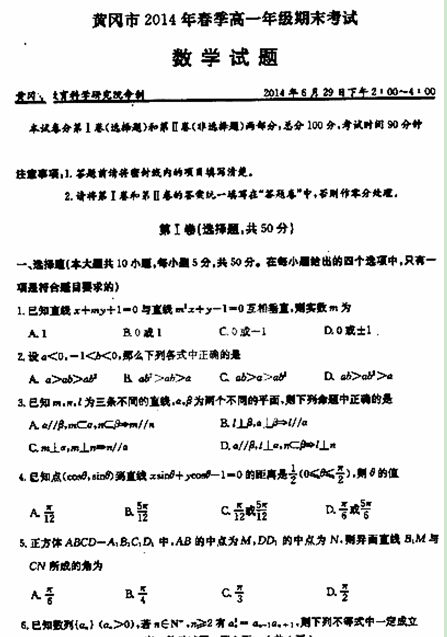 黄冈市2014年春季高一年级期末考试
数学试题
黄冈 育科学研究院命制 2014年6月29日下午2:00~4:00
本试卷分第Ⅰ卷(选择题)和第Ⅱ卷(非选择题)两部分,总分100分,考试时间90分钟
注意事项:1.答题前请将密封线内的项目填写清楚。
2.请将第Ⅰ卷和第Ⅱ卷的答案统一填写在“答题卷”中,否则作零分处理。
第Ⅰ卷(选择题,共50分)
一、选择题(本大题共10小题,每小题5分,共50分。在每小题给出的四个选项中,只有一
项是符合题目要求的)
1.已知直线x+my+1=0与直线m²x+y-1=0互相垂直,则实数m为
A.1 B.0或1 C.0或-1 D.0或±1
2.设a<0,-1<b<0,那么下列各式中正确的是
A. a>ab>ab² B. ab²>ab>a C. ab>a>ab² D. ab>ab²>a
3.已知m,n,l为三条不同的直线,α,β为两个不同的平面,则下列命题中正确的是
A.α//β,m⊂α,n⊂β⇒m//n B.l⊥β,α⊥β⇒l//α
C.m⊥α,m⊥n⇒n//α D.α//β,l⊥α,n⊂β⇒l⊥n
4.已知点(cosθ,sinθ)到直线xsinθ+ycosθ-1=0的距离是1/2(0≤θ≤π/2),则θ的值
A.π/12 B.5π/12 C.π/12或5π/12 D.π/6或5π/6
5.正方体ABCD-A₁B₁C₁D₁中,AB的中点为M,DD₁的中点为N,则异面直线B₁M与
CN所成的角为
A.π/6 B.π/4 C.π/3 D.π/2
6.已知数列{aₙ}(aₙ>0),若n∈N*,n≥2有aₙ²=aₙ₋₁aₙ₊₁,则下列不等式中一定成立